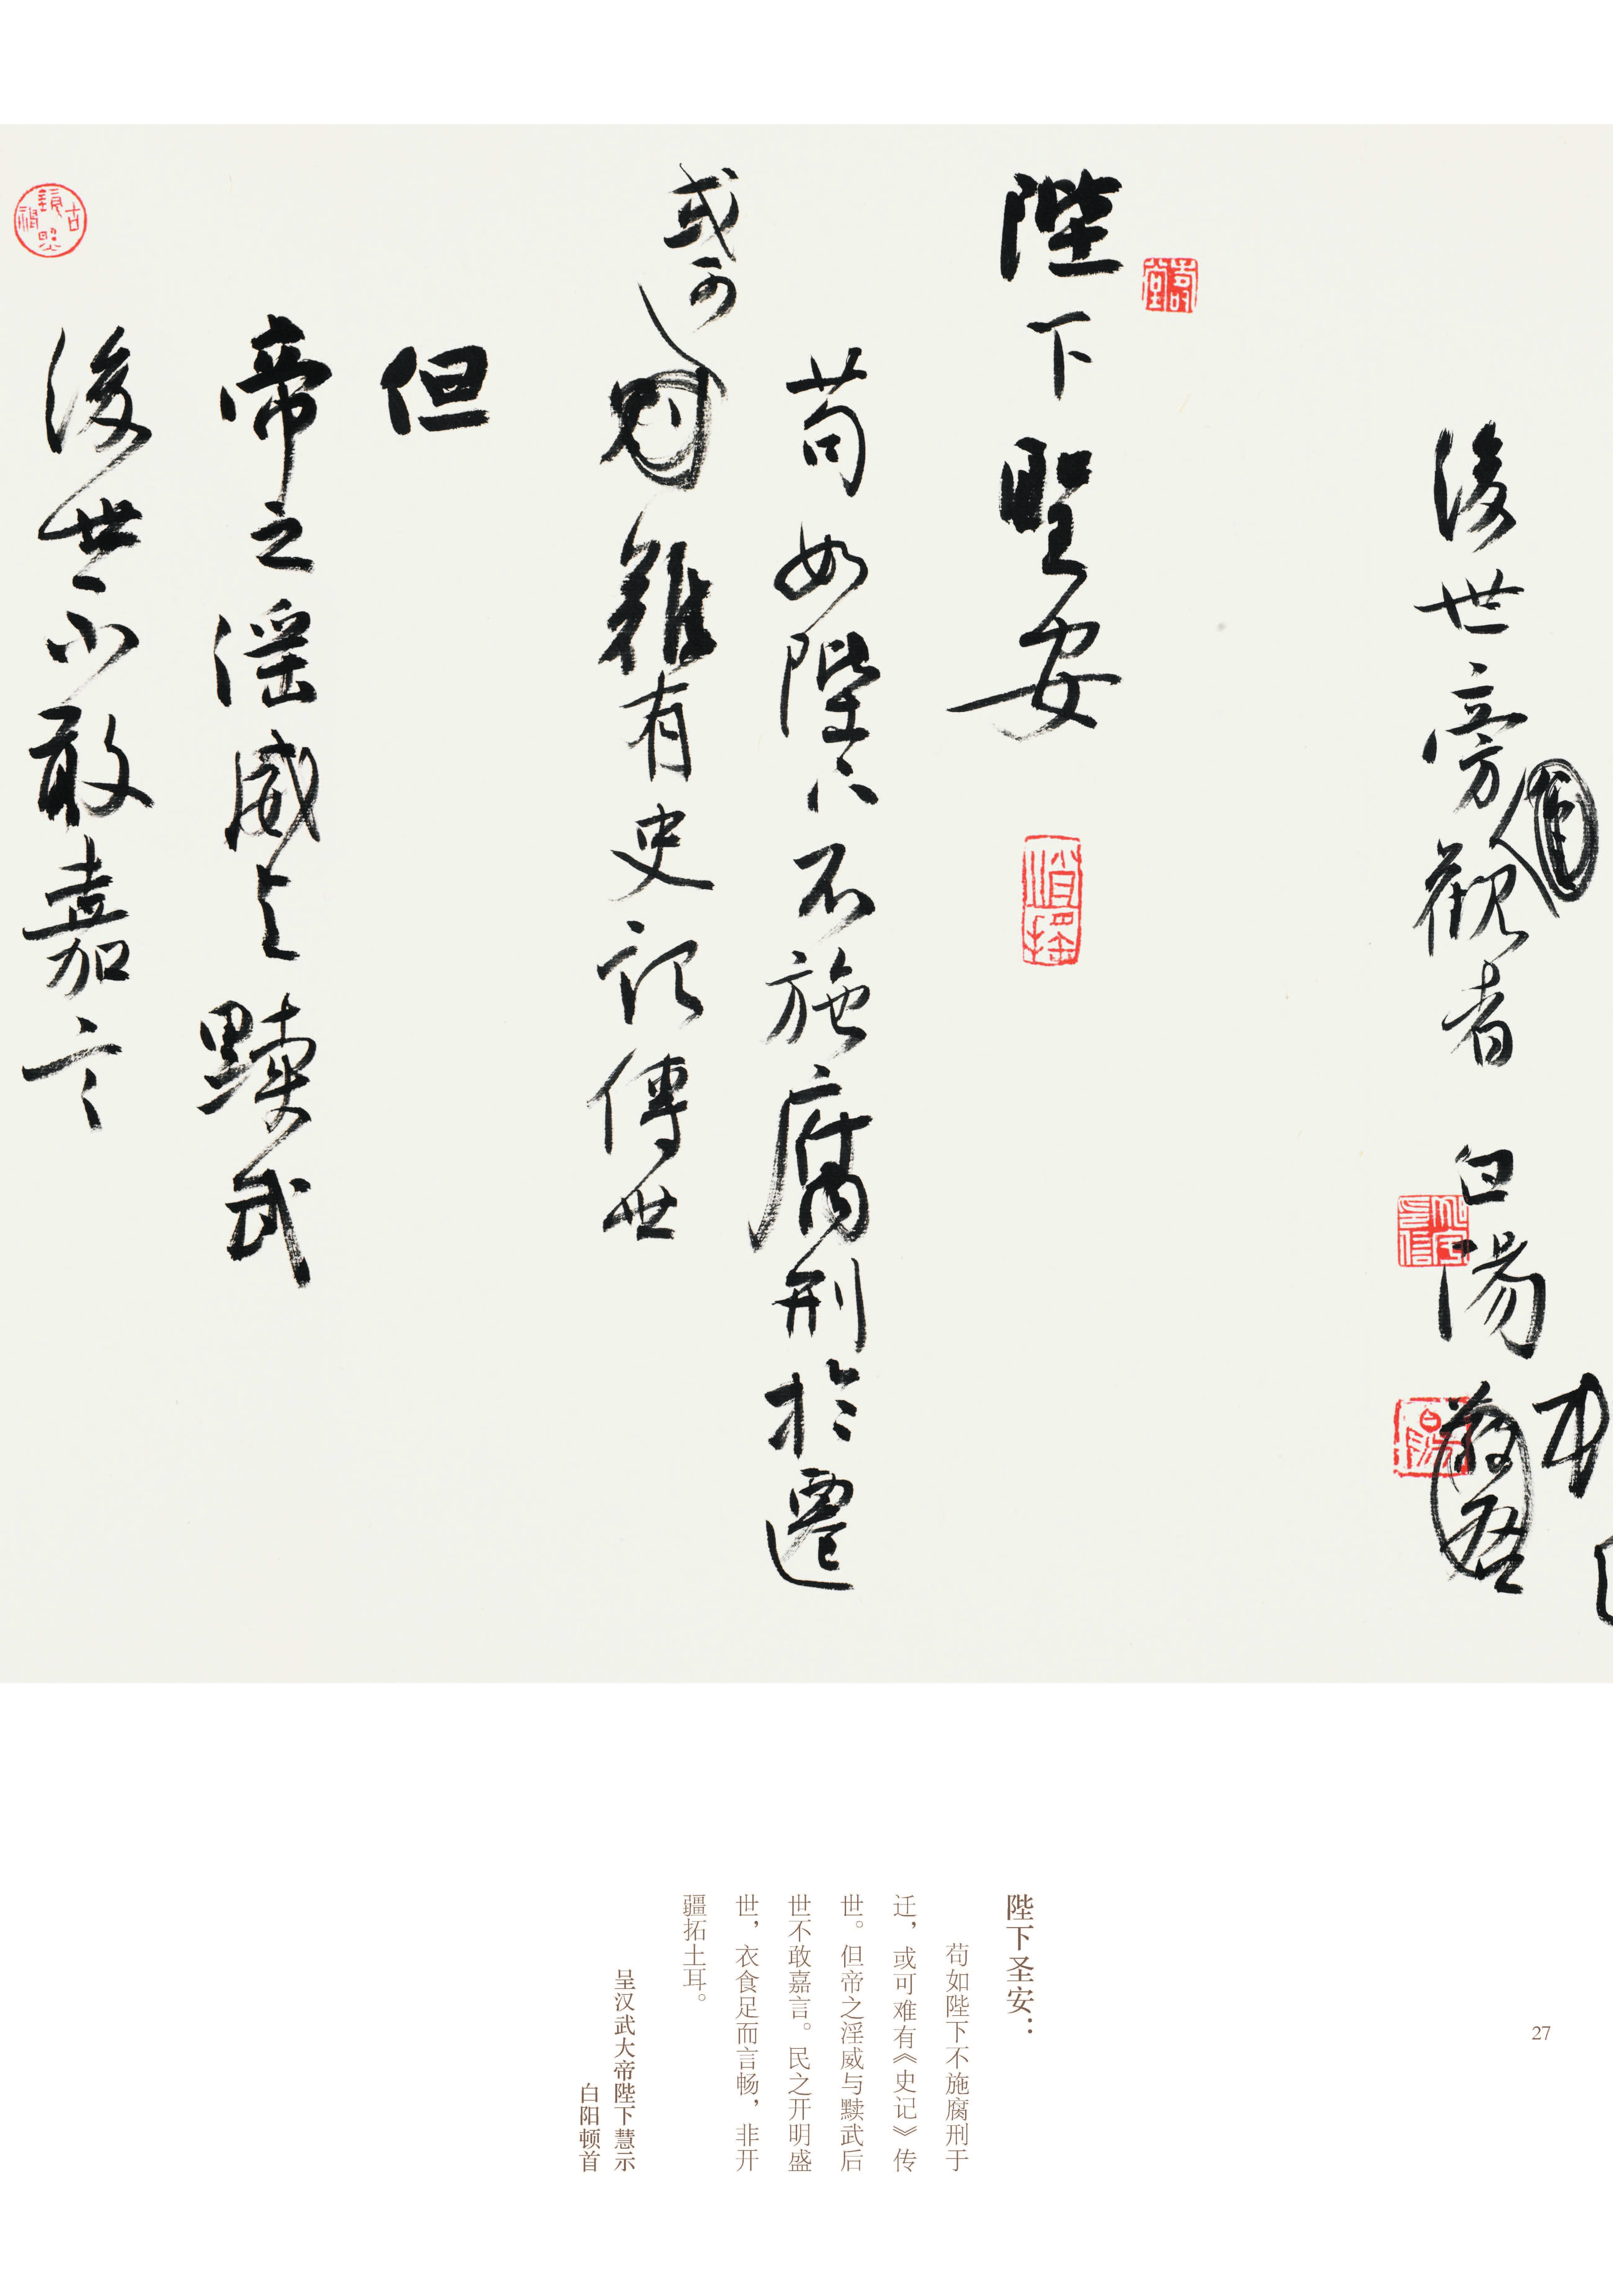 後世旁觀者 白陽
陛下聖安
苟如陛下不施腐刑於遷
或可
難有史記傳世
但
帝之淫威与黩武
後世不敢嘉言
陛下圣安：
苟如陛下不施腐刑于
迁，或可难有《史记》传
世。但帝之淫威与黩武后
世不敢嘉言。民之开明盛
世，衣食足而言畅，非开
疆拓土耳。
呈汉武大帝陛下慧示
白阳顿首
27